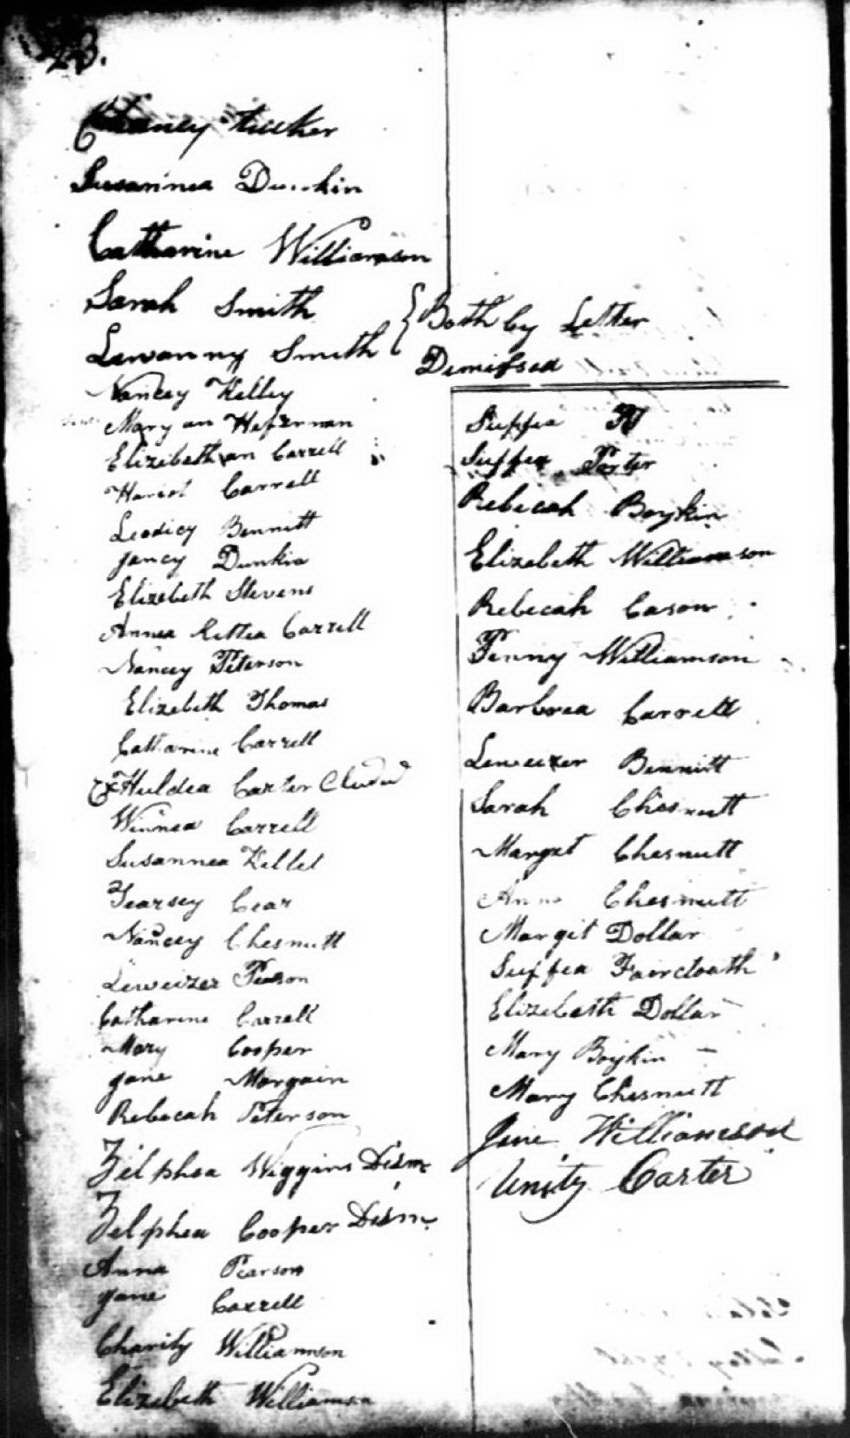 23.
Chaney Tucker
Susannea Dunkin
Catharine Williamson
Sarah Smith
Lewanny Smith
{Both by Letter
Demissed
Nancey Kelley
Mary an Hefernan
Elizebeth an Carrell
Hariot Carrell
Leodicy Bennett
Jancy Dunkin
Elizebeth Stevens
Annea Rittea Carrell
Nancey Peterson
Elizebeth Thomas
Catharine Carrell
Huldea Carter Cluded
Winnea Carrell
Susannea Kellet
Pearsey Cear
Nancey Chesnutt
Leweizer Pearson
Catharine Carrell
Mary Cooper
Jane Morgain
Rebecah Peterson
Zilphea Wiggins Dism
Zelphea Cooper Dism
Anna Pearson
Jane Carrell
Charity Williamson
Elizebeth Williamson
Suffea
Suffea Porter
Rebecah Boykin
Elizabeth Williamson
Rebecah Cason
Penny Williamson
Barbrea Carrell
Leweizer Bennitt
Sarah Chesnutt
Marget Chesnutt
Anna Chesnutt
Margit Dollar
Suffea Faircloath
Elizebeth Dollar
Mary Boykin
Mary Chesnutt
Jane Williamson
Unity Carter